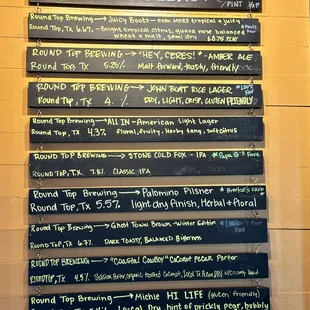 /PINT
Round Top Brewing → Juicy Boots - even more tropical & juicy
Round Top, Tx 6.6% - Bright tropical citrus, guava rose balanced
wheat & malt, semi dry
Round Top Brewing → "Hey, Ceres!" - Amber Ale
Round Top, Tx 5.25% Malt forward, toasty, friendly
Round Top Brewing → John Boat Rice Lager
Round Top, Tx 4. % Dry, light, crisp, gluten friendly
Round Top Brewing → All In - American Light Lager
Round Top, Tx 4.3% floral, fruity, herby tang, soft citrus
Round Top Brewing → Stone Cold Fox - IPA *Papa G's Fave
Round Top, Tx. 7.8% Classic IPA
Round Top Brewing → Palomino Pilsner
Round Top, Tx 5.5% light dry finish, Herbal & Floral
Round Top Brewing → Ghost Town Brown - Winter Edition
Round Top, Tx 6.7% Dark, Toasty, Balanced Bitterness
Round Top Brewing → "Coastal Cowboy" Coconut Pecan Porter
Round Top, Tx 4.5%
Round Top Brewing → Michie Hi Life (gluten friendly)
Dry, hint of prickly pear, bubbly